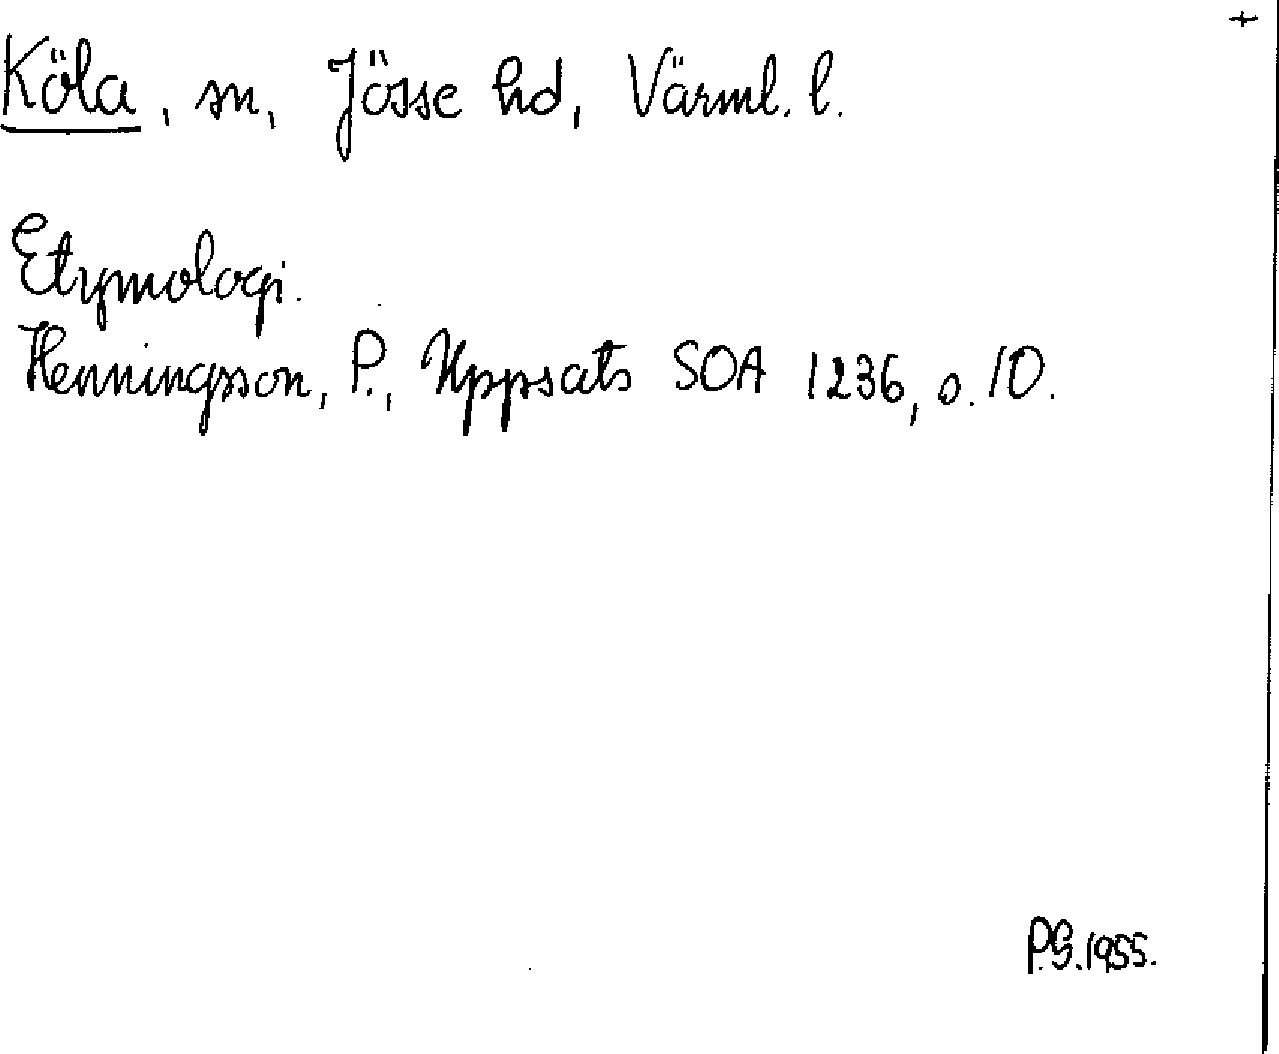 +
Köla, sn, Jösse hd, Värml. l.
Etymologi.
Henningsson, P., Uppsats SOA 1236, s. 10.
P.G. 1955.